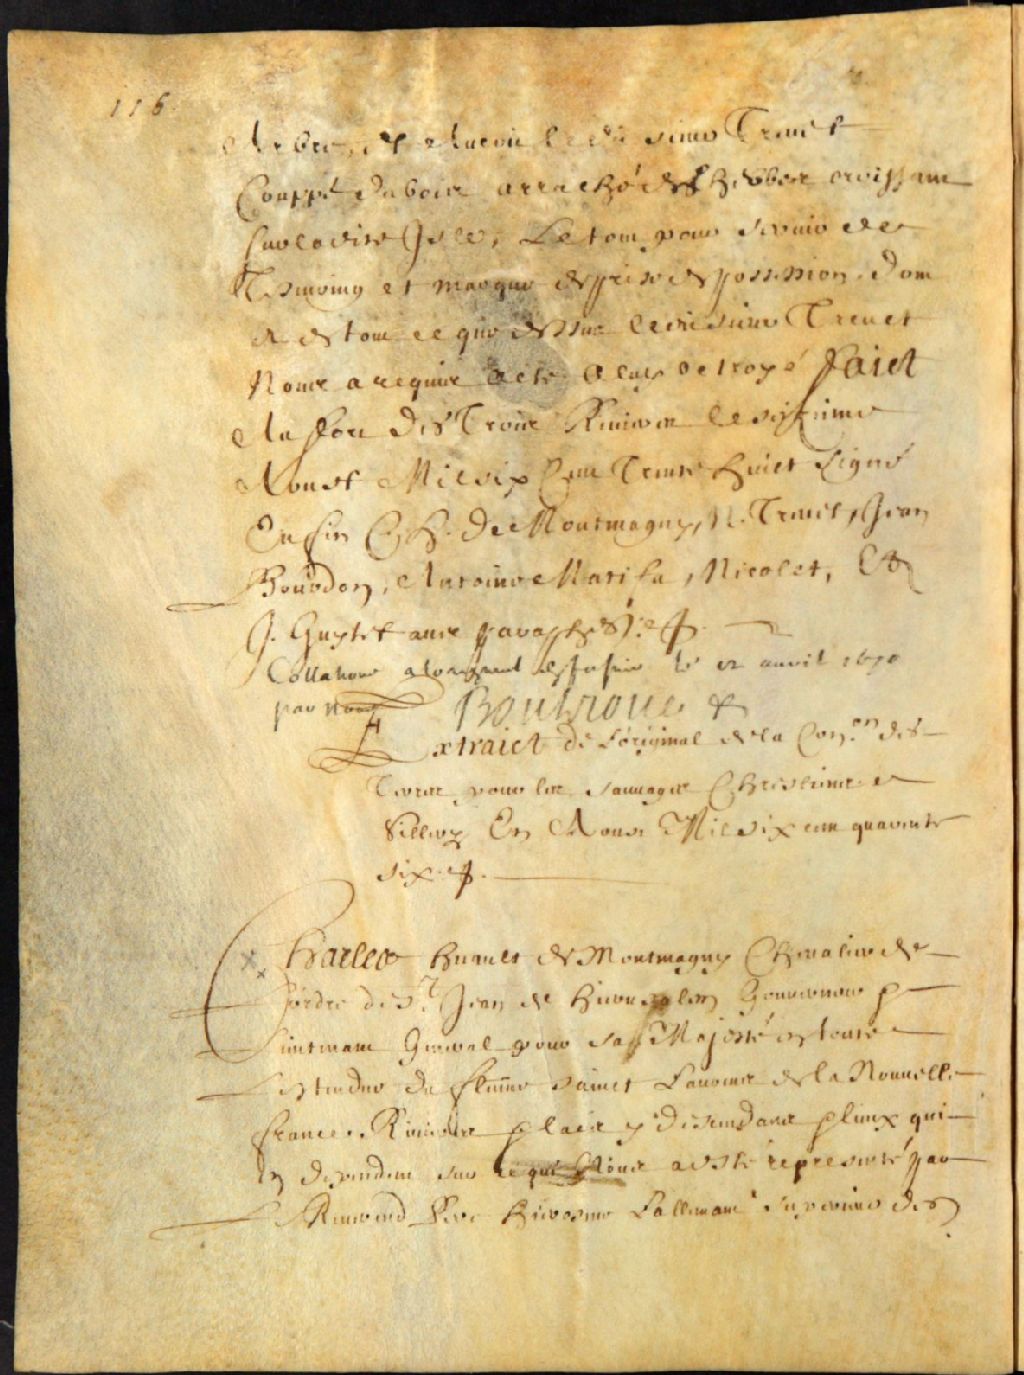 116.
Arbres, et Aucuii ledit sieur Treuet
Couppé du bois arraché des herbes croissans
sur ladite Isle, Le tout pour seruir de
Tesmoing et marque de prise de possession dont
& de tout ce que dessus ledit sieur Treuet
Nous a requis acte a luy octroyé Faict
Au fort des Trois Riuieres le
Aoust Mil six Cent Trente huict Signé
En fin C. H. De Montmagny, N. Treuet, Jean
Bourdon, Antoine Nicolet, Et
J. Guytet auec paraphes
Collationé a loriginal le 12 auril 1670
par nous Boutroue
Extraict de Loriginal de la Con.on des
Terres pour les sauuages Chrestiens a
Sillery En Aoust Mil six cent quarente
six
Charles huault de Montmagny Cheualier de
Lordre de St. Jean de hierusalem Gouuerneur &
Lieutenant General pour sa Majesté en toute
Lestendue du fleuue sainct Laurens de la Nouuelle
france, Riuieres & lacs y descendans & lieux qui
en dependent sur ce qui Nous a esté representé par
Le Reuerend Pere hierosme Lallemant superieur des